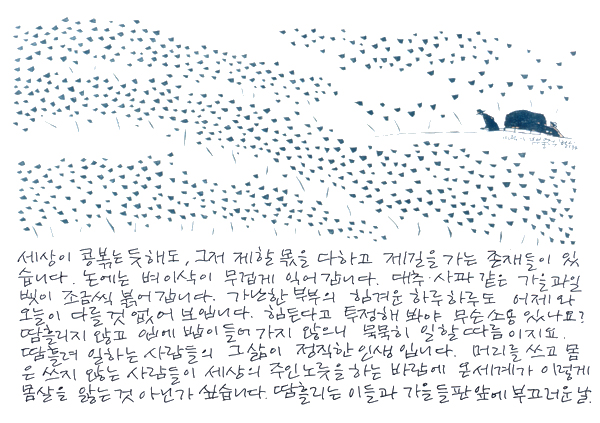 세상이 콩볶는 듯해도, 그저 제할 몫을 다하고 제길을 가는 존재들이 있
습니다. 논에는 벼이삭이 무겁게 익어갑니다. 대추·사과 같은 가을과일
빛이 조금씩 붉어 갑니다. 가난한 부부의 힘겨운 하루하루도 어제와
오늘이 다를것 없어 보입니다. 힘든다고 투정해 봐야 무슨 소용 있나요?
땀흘리지 않고 입에 밥이 들어가지 않으니 묵묵히 일할 따름이지요.
땀흘려 일하는 사람들의 그 삶이 정직한 인생입니다. 머리를 쓰고 몸
은 쓰지 않는 사람들이 세상의 주인노릇을 하는 바람에 온세계가 이렇게
몸살을 앓는 것 아닌가 싶습니다. 땀흘리는 이들과 가을들판 앞에 부끄러운 날